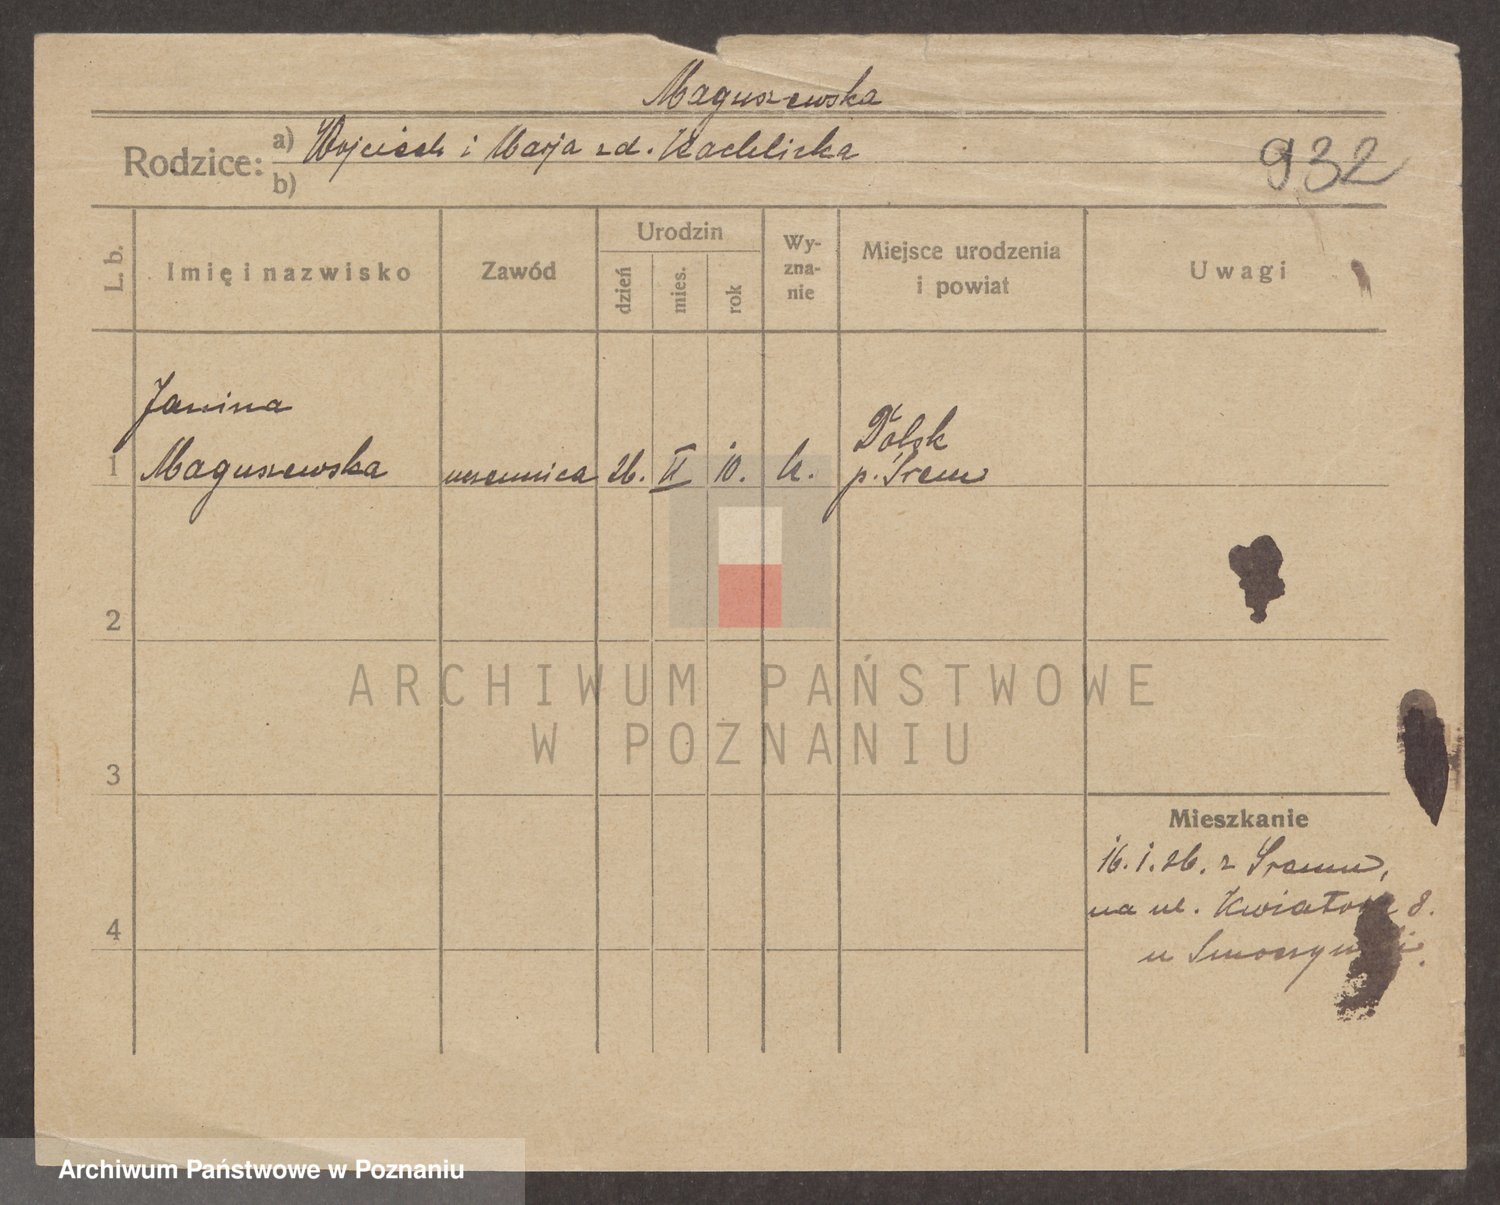 Maguszewska
Rodzice: a) Wojciech i Marja zd. Kachlicka
b)
932
L. b.
Imię i nazwisko
Zawód
Urodzin
dzień
mies.
rok
Wy-
zna-
nie
Miejsce urodzenia
i powiat
Uwagi
1
Janina
Maguszewska
uczennica
26.
II
10.
k.
Dolsk
p. Śrem
2
3
4
Mieszkanie
16.1.26. z Śremu,
na ul. Kwiatow 8.
u
ARCHIWUM PAŃSTWOWE
W POZNANIU
Archiwum Państwowe w Poznaniu